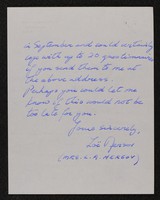 in September and could certainly
cope with up to 20 questionnaires
if you send them to me at
the above address.
Perhaps you could let me
know if this would not be
too late for you.
Yours sincerely,
(MRS. L. R.